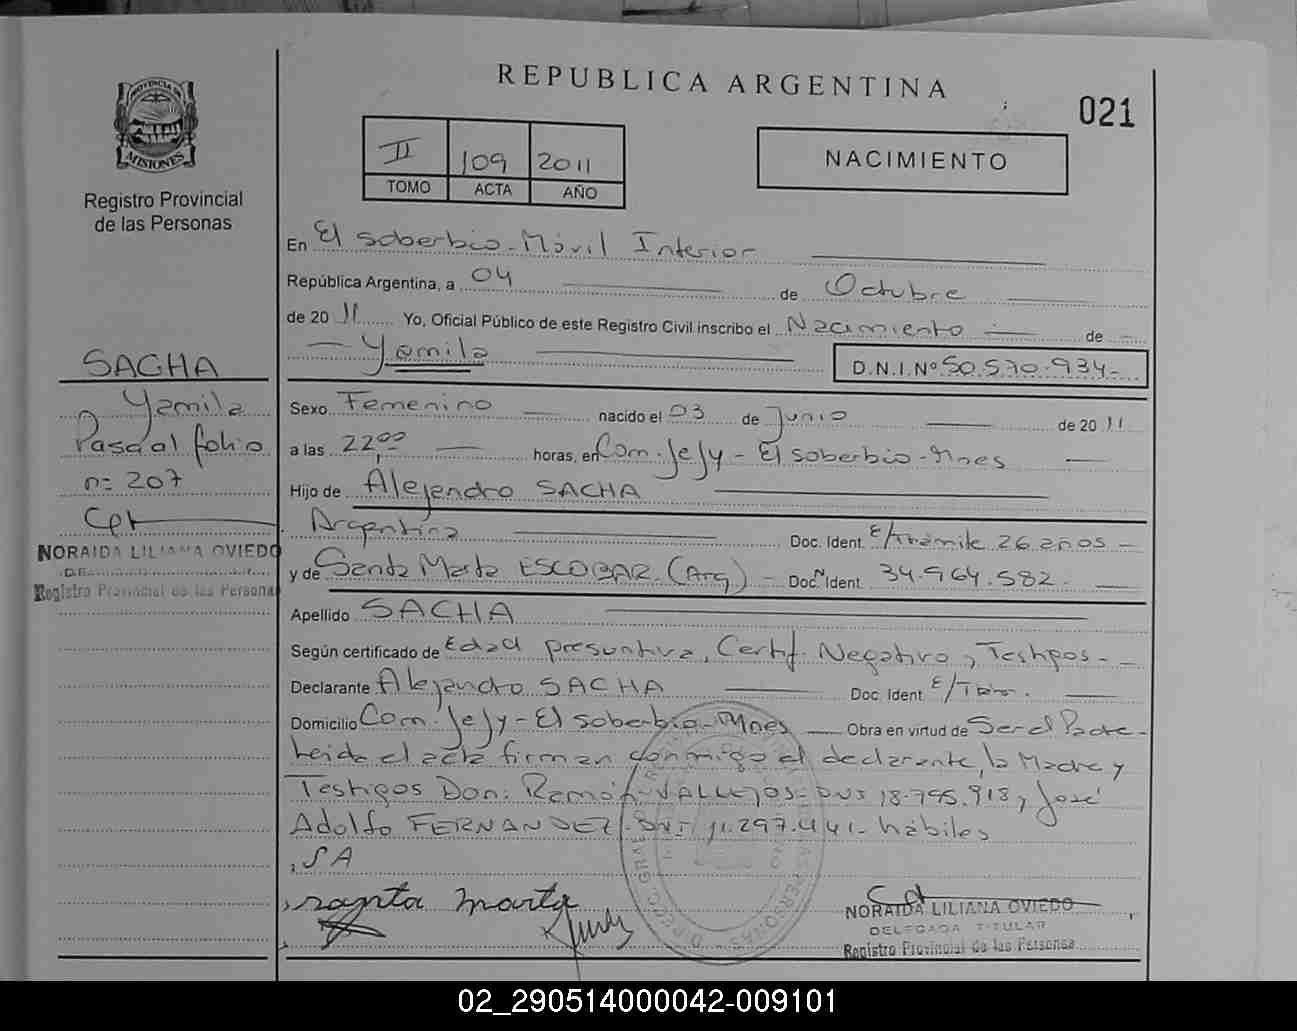 REPUBLICA ARGENTINA
021
PROVINCIA DE
MISIONES
Registro Provincial
de las Personas
II 109 2011
TOMO ACTA AÑO
NACIMIENTO
En El Soberbio - Móvil Interior
República Argentina, a 04 de Octubre
de 2011 Yo, Oficial Público de este Registro Civil inscribo el Nacimiento de
Yamila
D.N.I.Nº 50.570.934-
SACHA
Yamila
Pasa al folio
nº 207
NORAIDA LILIANA OVIEDO
Registro Provincial de las Personas
Sexo Femenino nacido el 03 de Junio de 2011
a las 22,00 horas, en Com. Jejy - El Soberbio - Mnes
Hijo de Alejandro SACHA
Argentina Doc. Ident. E/trámite 26 años -
y de Santa Marta ESCOBAR (Arg) - Doc. Ident. 34.964.582.
Apellido SACHA
Según certificado de Edad presuntiva, Certif. Negativo, Testigos -
Declarante Alejandro SACHA Doc. Ident E/Trám.
Domicilio Com. Jejy - El Soberbio - Mnes Obra en virtud de Ser el Padre -
Leida el acta firman conmigo el declarante, la Madre y
Testigos Don: Ramón VALLEJOS - DNI 18.795.918, José
Adolfo FERNANDEZ - DNI 11.297.441 - hábiles
SA
santa marta
NORAIDA LILIANA OVIEDO
DELEGADA TITULAR
Registro Provincial de las Personas
02_290514000042-009101